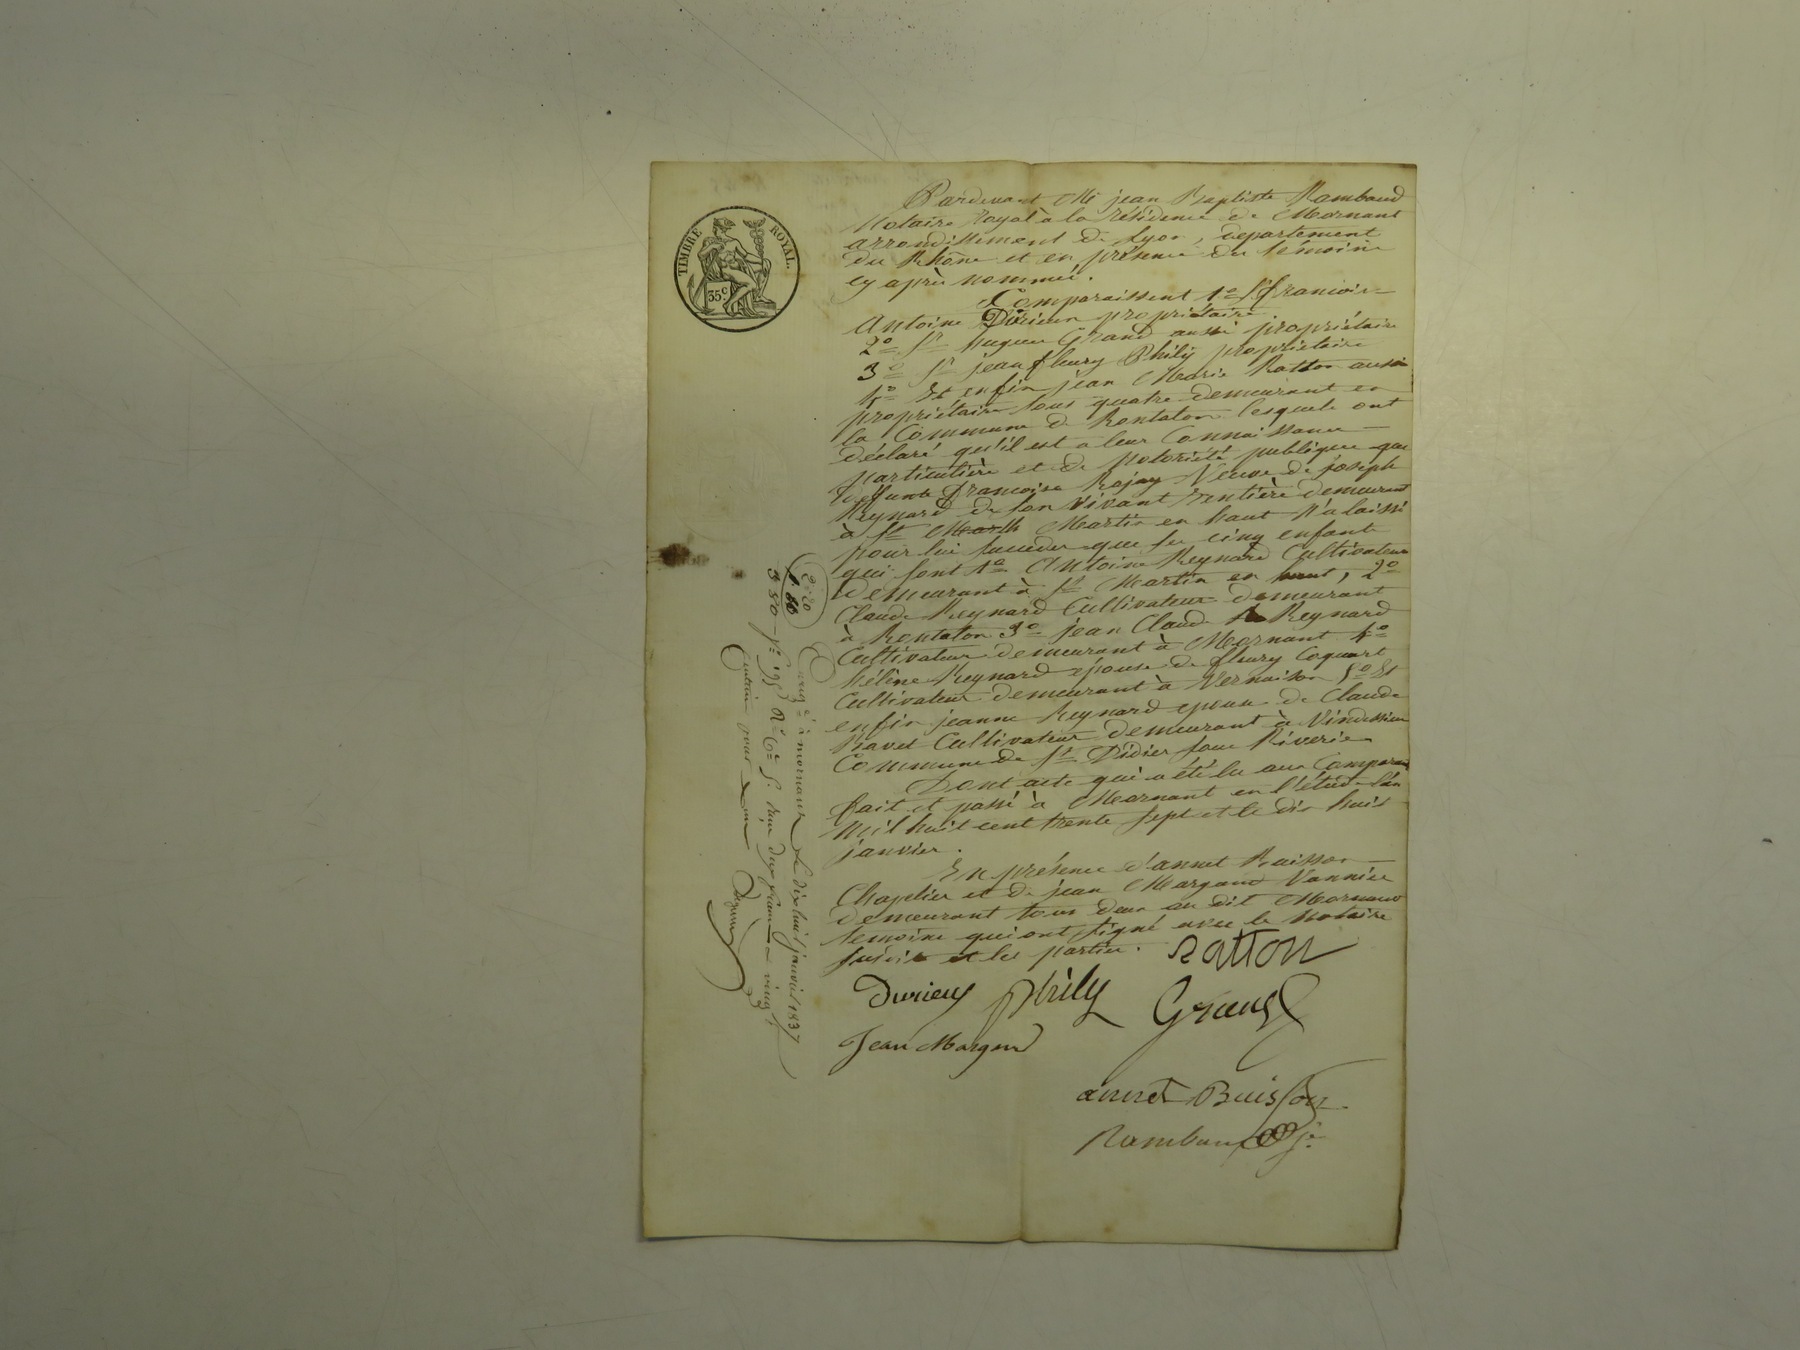 TIMBRE ROYAL.
35c
Pardevant Me jean Baptiste Rambaud
Notaire royal à la résidence de Mornant
arrondissement de Lyon, département
du Rhône et en présence des témoins
cy après nommés.
Comparaissent 1o Sr francois
Antoine Durieux propriétaire
2o Sr hugues Grand aussi propriétaire
3o Sr jean fleury Phily propriétaire
4o Et enfin jean Marie Ratton aussi
propriétaire tous quatre demeurant en
la Commune de Rontalon lesquels ont
déclaré qu'il est a leur Connaissance
particulière et de notoriété publique que
deffunte francoise Rojay Veuve de joseph
Reynard de son vivant rentière demeurant
à St Martin en haut n'a laissé
pour lui succéder que ses cinq enfant
qui sont 1o Antoine Reynard Cultivateur
demeurant à St Martin en haut, 2o
Claude Reynard Cultivateur demeurant
à Rontalon 3o jean Claude Reynard
Cultivateur demeurant à Mornant 4o
hélène Reynard épouse de fleury Coquart
Cultivateur demeurant à Vernaison 5o Et
enfin jeanne Reynard epouse de Claude
Cultivateur demeurant à
Commune de St Didier sous Riverie
Dont acte qui a été lu aux Comparans
fait et passé à Mornant en l'étude l'an
mil huit cent trente sept et le dix huit
janvier.
En présence d'annet Buisson
Chapelier et de jean Margand Vannier
demeurant tous deux au dit Mornant
temoins qui ont signé avec le Notaire
susdit et les parties.
ratton
Durieux Phily Grand
Jean Margand
annet Buisson
Rambaud
2.20
3 50
Enregé à mornant le dix huit janvier 1837
Reçu deux francs vingt
centimes pour